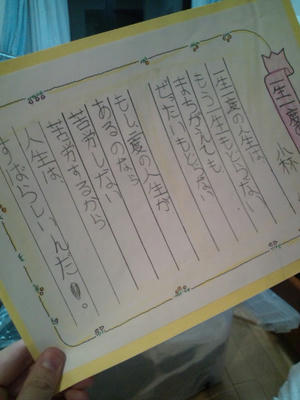 一生一度
一生一度の人生は
もう一生もどらない
まちがえても
ぜったいもどらない
もし二度の人生が
あるのなら
苦労しない
苦労するから
人生は、
すばらしいんだ!。